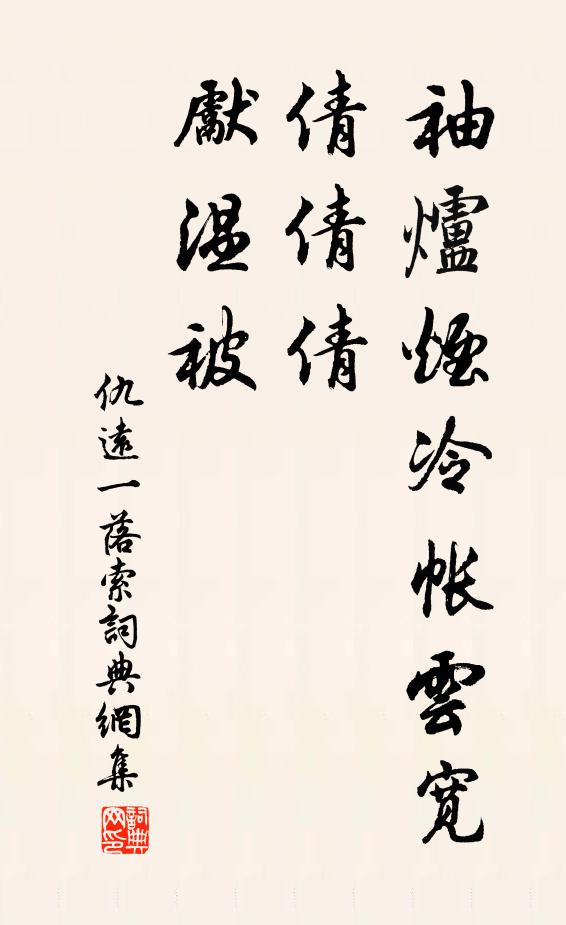 袖爐煙冷帳雲寬
倩倩倩
獻温被
仇遠一落索詞典網集
詞典网印